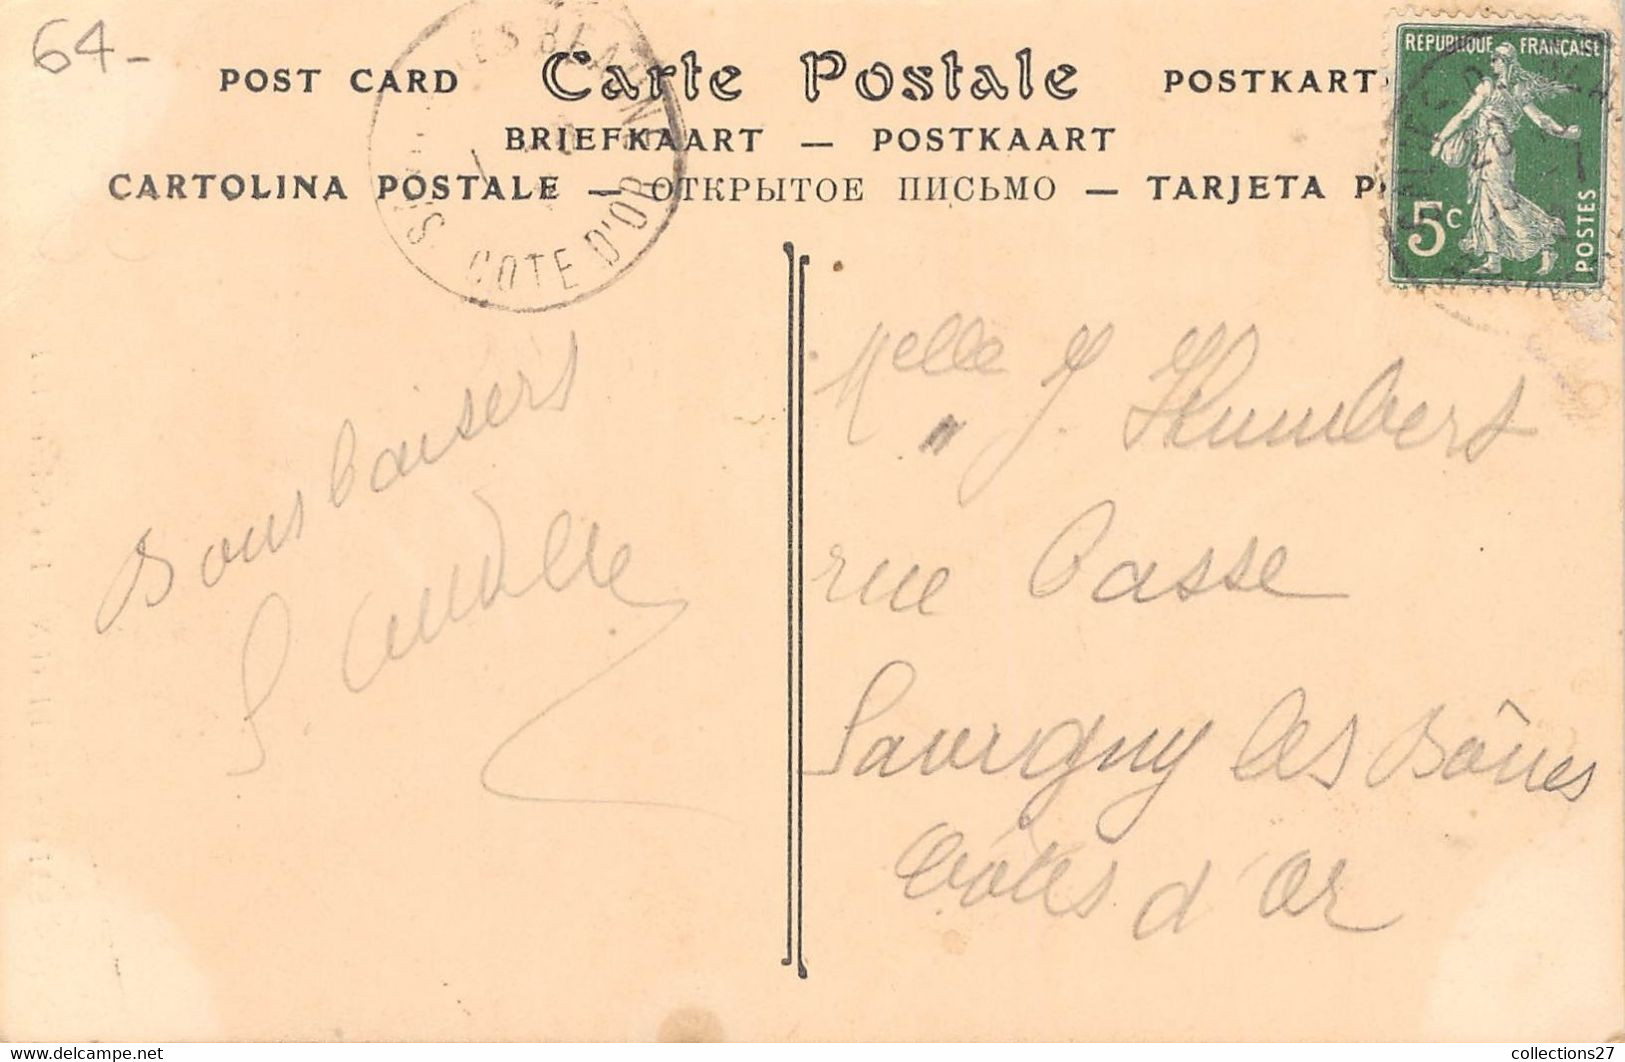 64-
POST CARD Carte Postale POSTKART
BRIEFKAART — POSTKAART
CARTOLINA POSTALE — ОТКРЫТОЕ ПИСЬМО — TARJETA P
LES BEAUNE
COTE D'OR
REPUBLIQUE FRANÇAISE
5c
POSTES
Bons baisers
Melle J. Humbert
rue Basse
Savigny les Bônes
Côtes d'Or
collections27